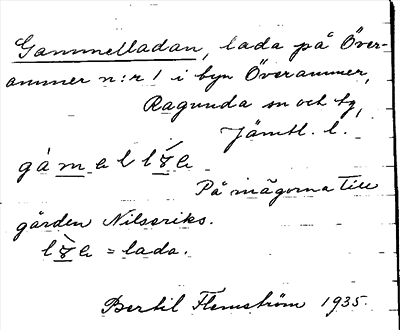 Gammelladan, lada på Över-
ammer n:r 1 i byn Överammer,
Ragunda sn och tg,
Jämtl. l.
På mägorna till
gården Nilseriks.
= lada.
Bertil Flemström 1935.